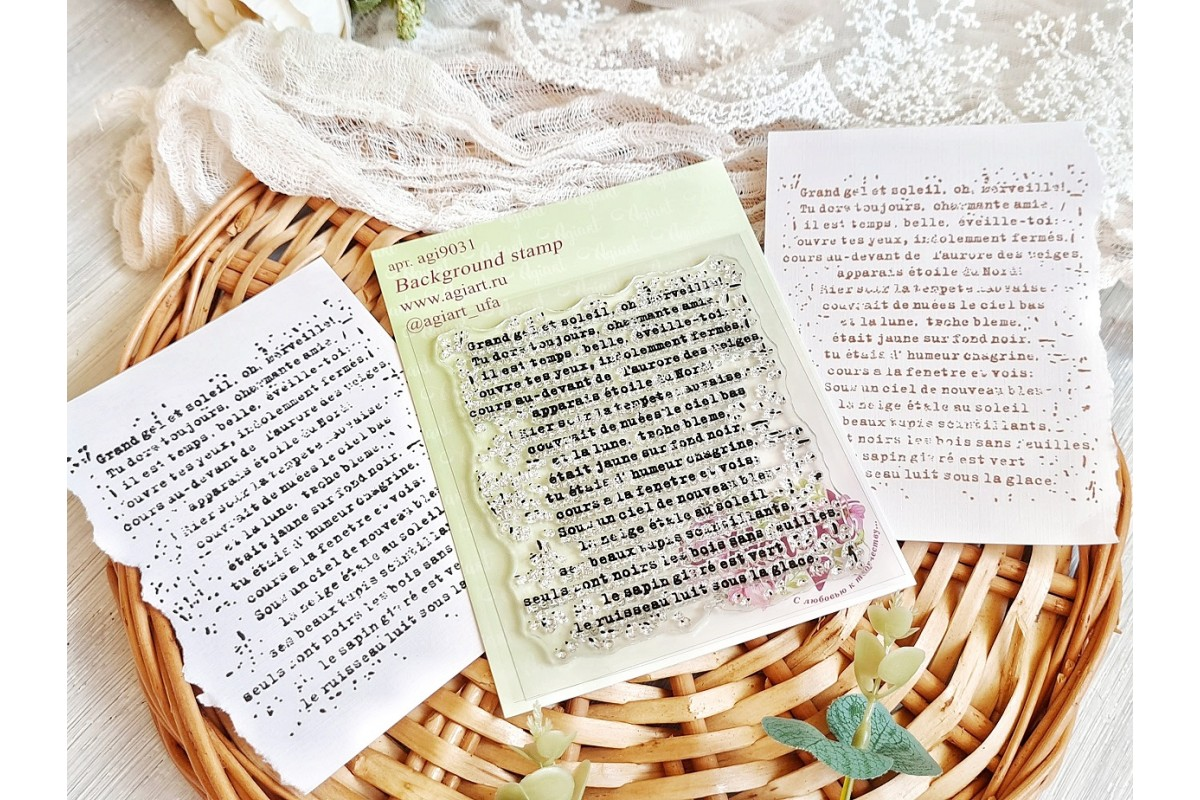 Grand gel et soleil, oh, merveille!
Tu dors toujours, charmante amie.
il est temps, belle, éveille-toi:
ouvre tes yeux, indolemment fermés,
cours au-devant de l'aurore des neiges,
apparais étoile du Nord!
Hier soir la tempete mauvaise
couvrait de nuées le ciel bas
et la lune, tache bleme,
était jaune sur fond noir,
tu étais d'humeur chagrine,
cours a la fenetre et vois:
Sous un ciel de nouveau bleu
la neige étale au soleil
ses beaux tapis scintillants
seuls sont noirs les bois sans
le sapin givré est ve
le ruisseau luit sous la
арт. agi9031
Background stamp
www.agiart.ru
@agiart_ufa
Grand gel et soleil, oh, merveille!
Tu dors toujours, charmante amie.
il est temps, belle, éveille-toi:
ouvre tes yeux, indolemment fermés,
cours au-devant de l'aurore des neiges,
apparais étoile du Nord!
Hier soir la tempete mauvaise
couvrait de nuées le ciel bas
et la lune, tache bleme,
était jaune sur fond noir,
tu étais d'humeur chagrine,
cours a la fenetre et vois:
Sous un ciel de nouveau bleu
la neige étale au soleil
ses beaux tapis scintillants
seuls sont noirs les bois sans feuilles,
le sapin givré est vert
le ruisseau luit sous la glace.
С любовью к творчеству...
Grand gel et soleil, oh, merveille!
Tu dors toujours, charmante amie.
il est temps, belle, éveille-toi:
ouvre tes yeux, indolemment fermés,
cours au-devant de l'aurore des neiges,
apparais étoile du Nord!
Hier soir la tempete mauvaise
couvrait de nuées le ciel bas
et la lune, tache bleme,
était jaune sur fond noir,
tu étais d'humeur chagrine,
cours a la fenetre et vois:
Sous un ciel de nouveau bleu
la neige étale au soleil
beaux tapis scintillants,
t noirs les bois sans feuilles,
sapin givré est vert
seau luit sous la glace.